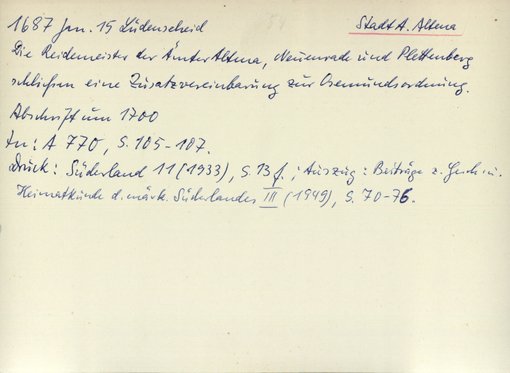 1687 Jan. 15 Lüdenscheid
Stadt A. Altena
Die Reidemeister der Ämter Altena, Neuenrade und Plettenberg
schließen eine Zusatzvereinbarung zur Osemundsordnung.
Abschrift um 1700
In: A 770, S. 105-107.
Druck: Süderland 11 (1933), S. 13 f.; Auszug: Beiträge z. Gesch. u.
Heimatkunde d. märk. Süderlandes III (1949), S. 70-76.